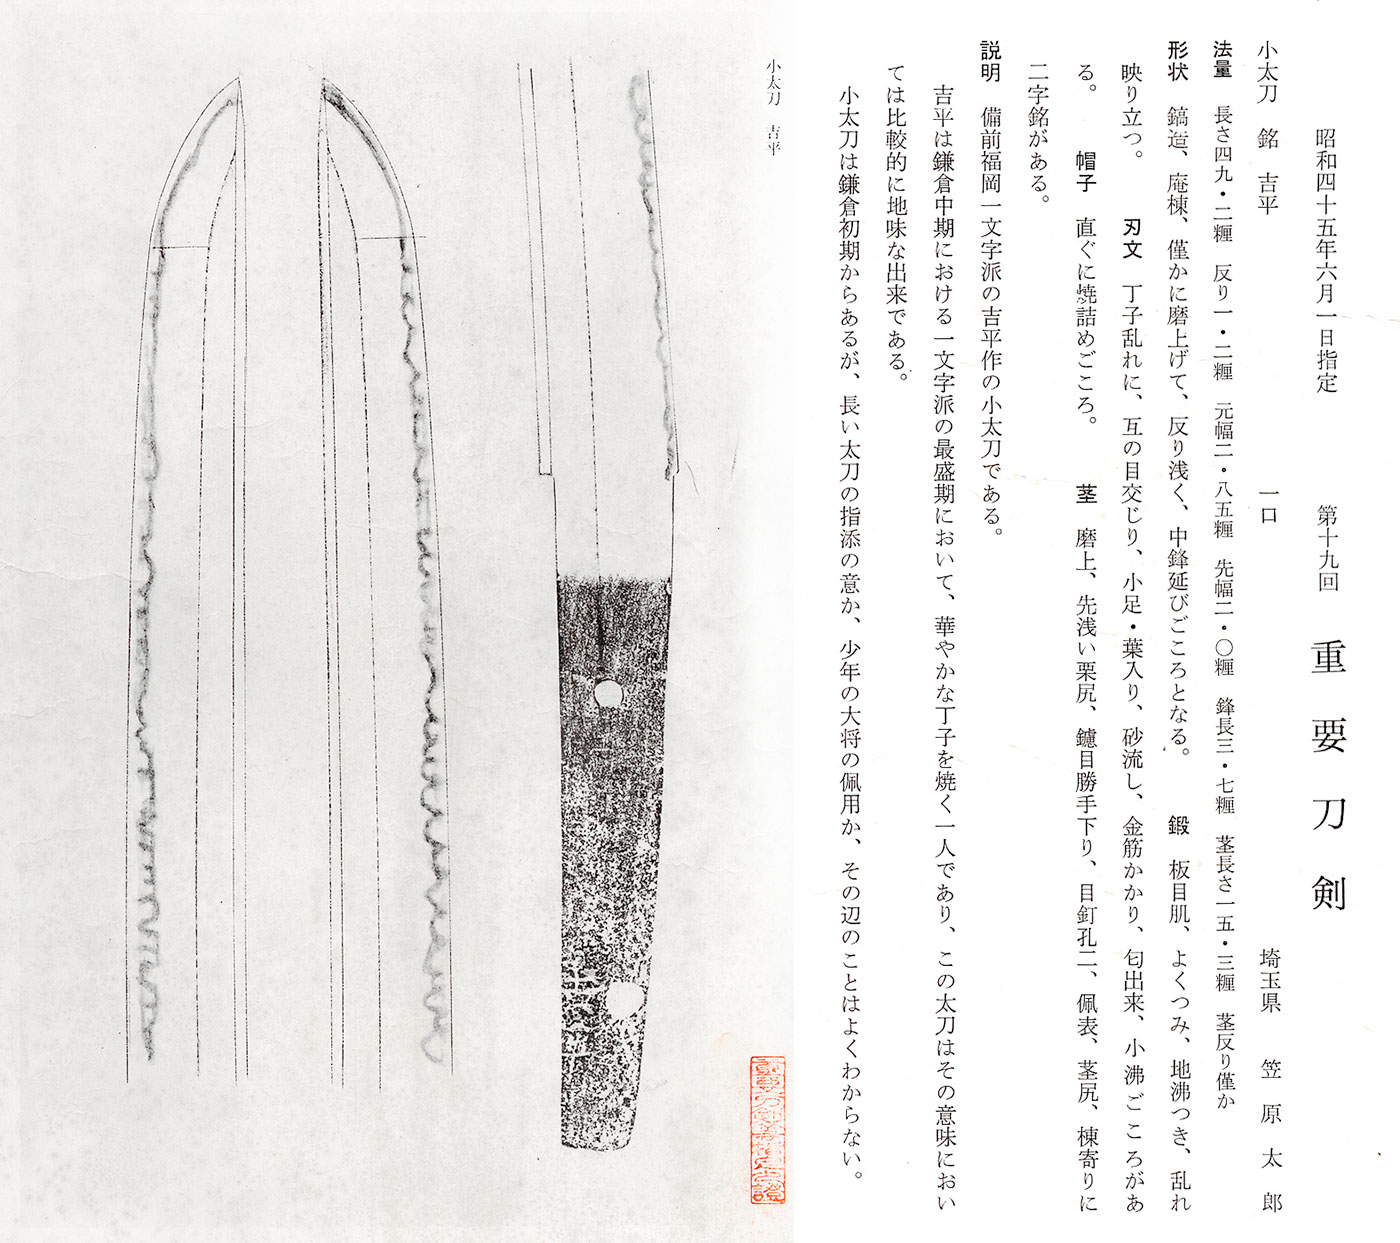 昭和四十五年六月一日指定　第十九回　重要刀剣
小太刀　銘　吉平　一口　埼玉県　笠原太郎
法量　長さ四九・二糎　反り一・二糎　元幅二・八五糎　先幅二・〇糎　鋒長三・七糎　茎長さ一五・三糎　茎反り僅か
形状　鎬造、庵棟、僅かに磨上げて、反り浅く、中鋒延びごころとなる。　鍛　板目肌、よくつみ、地沸つき、乱れ
映り立つ。　刃文　丁子乱れに、互の目交じり、小足・葉入り、砂流し、金筋かかり、匂出来、小沸ごころがあ
る。　帽子　直ぐに焼詰めごころ。　茎　磨上、先浅い栗尻、鑢目勝手下り、目釘孔二、佩表、茎尻、棟寄りに
二字銘がある。
説明　備前福岡一文字派の吉平作の小太刀である。
吉平は鎌倉中期における一文字派の最盛期において、華やかな丁子を焼く一人であり、この太刀はその意味におい
ては比較的に地味な出来である。
小太刀は鎌倉初期からあるが、長い太刀の指添の意か、少年の大将の佩用か、その辺のことはよくわからない。
小太刀　吉平